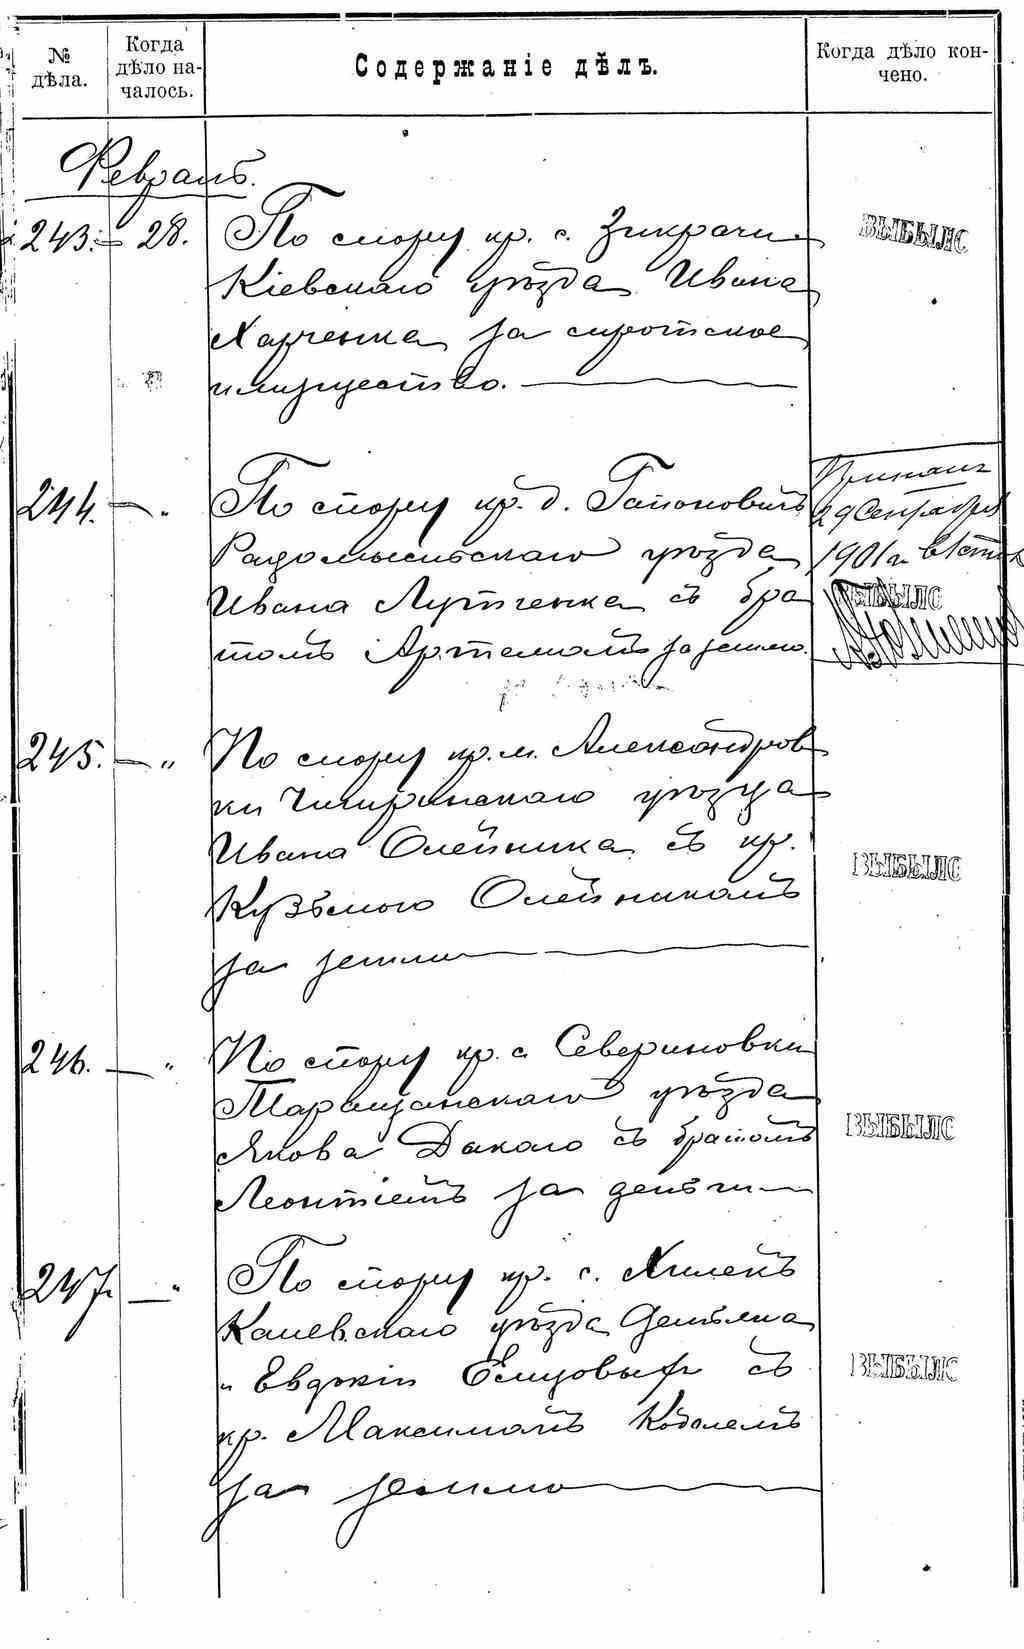 № дѣла.
Когда дѣло на-
чалось.
Содержаніе дѣлъ.
Когда дѣло кон-
чено.
Февраль.
243. — 28. По спору кр. с. Зикрачи
Кіевскаго уѣзда Ивана
Харченка за сиротское
имущество.
ВЫБЫЛО
244. — „ По спору кр. д. Гапоновичъ
Радомысльскаго уѣзда
Ивана Лутченка съ бра
томъ Артемомъ за землю.
29 Сентября
1901 г.
ВЫБЫЛО
245. — „ По спору кр. м. Александров
ки Чигиринскаго уѣзда
Ивана Олейника съ кр.
Кузьмою Олейникомъ
за землю
ВЫБЫЛО
246. — „ По спору кр. с. Севериновки
Таращанскаго уѣзда
Якова Дакаго съ братомъ
Леонтіемъ за деньги
ВЫБЫЛО
247. — „ По спору кр. с. Хмелекъ
Каневскаго уѣзда Демьяна
и Евдокіи
съ
кр. Максимомъ Ковалемъ
за землю
ВЫБЫЛО